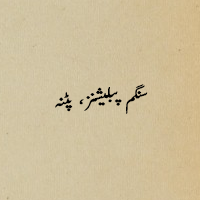 سنگم پبلیشنز، پٹنہ